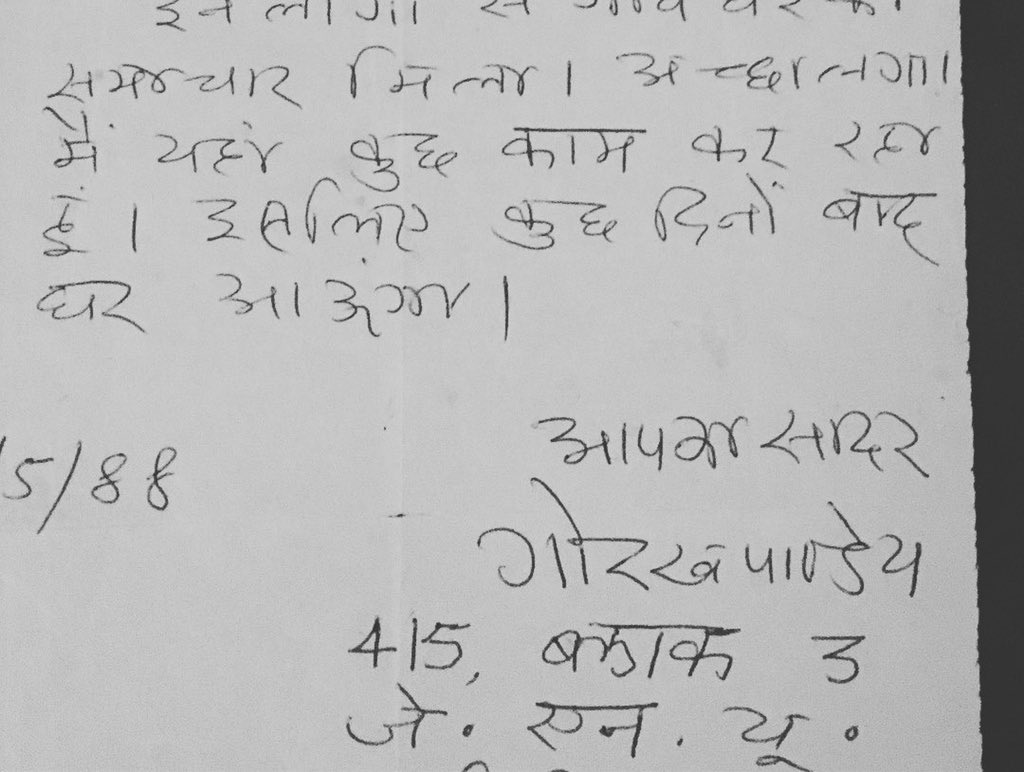 इन लोगों से
समाचार मिला। अच्छा लगा।
मैं यहां कुछ काम कर रहा
हूं। इसलिए कुछ दिनों बाद
घर आऊंगा।
आपका सादर
5/88
गोरख पाण्डेय
415, ब्लाक 3
जे. एन. यू.